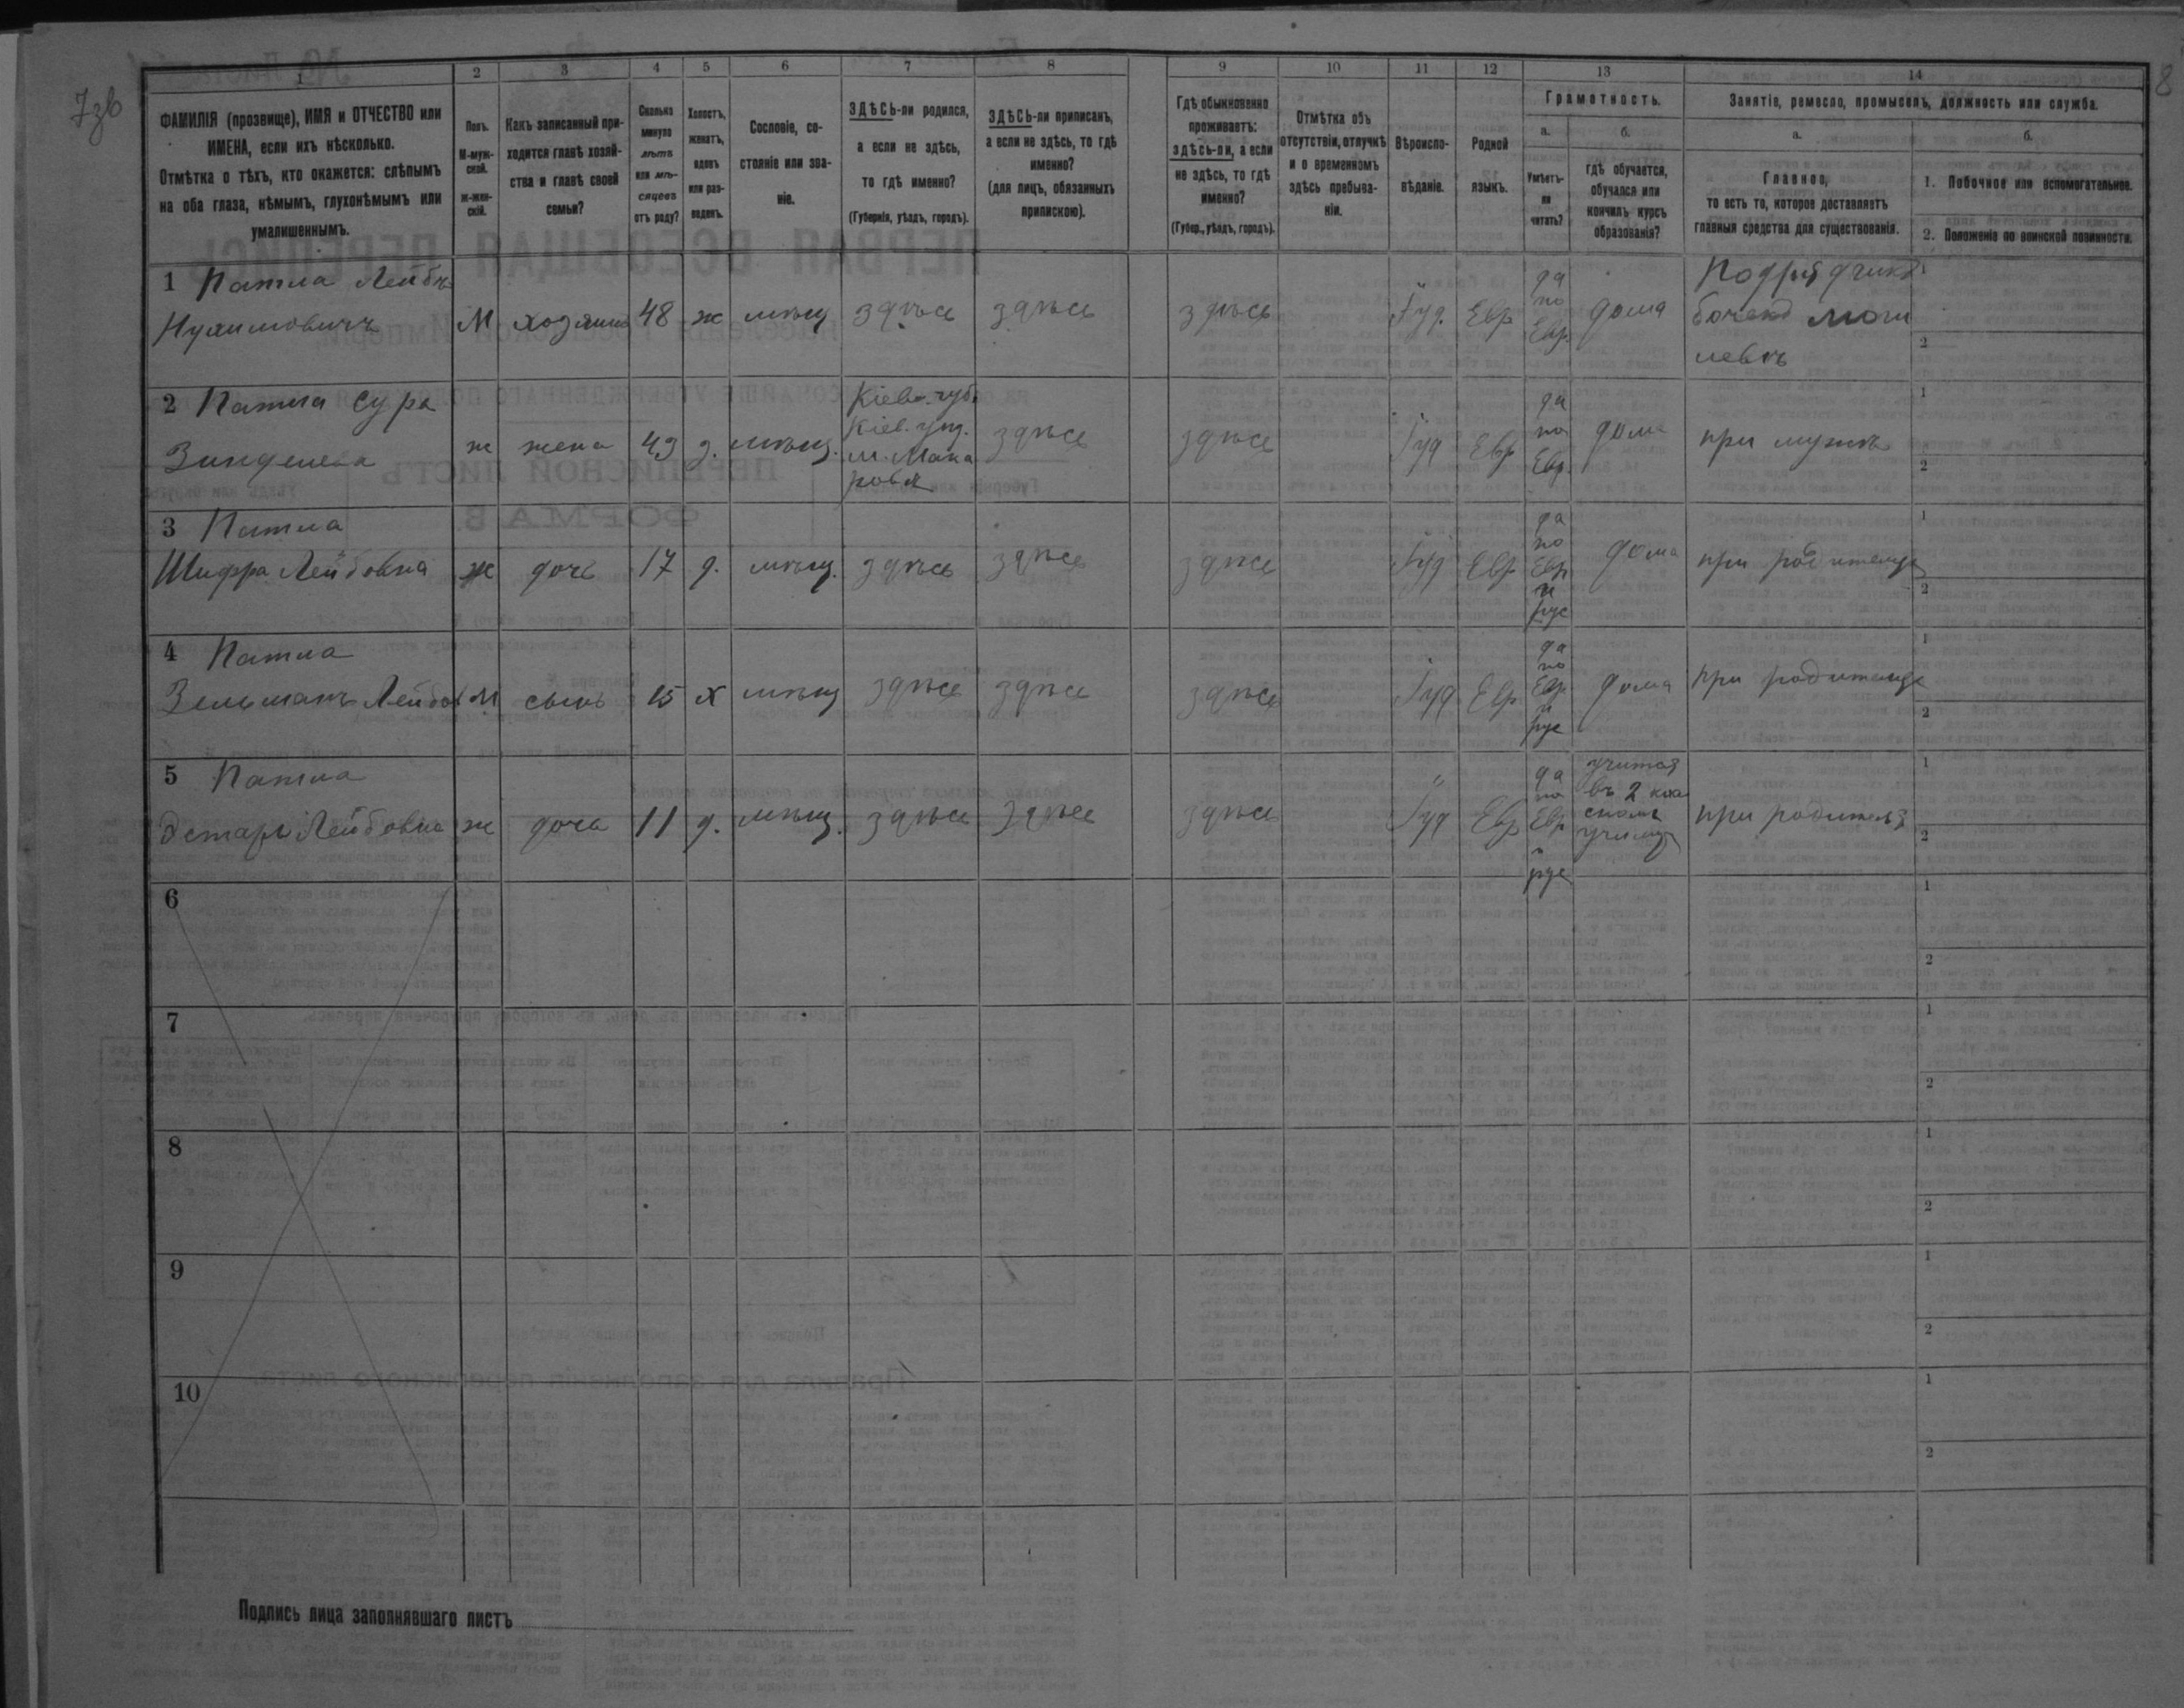 7зв
8
1 2 3 4 5 6 7 8 9 10 11 12 13 14
ФАМИЛІЯ (прозвище), ИМЯ и ОТЧЕСТВО или
ИМЕНА, если ихъ нѣсколько.
Отмѣтка о тѣхъ, кто окажется: слѣпымъ
на оба глаза, нѣмымъ, глухонѣмымъ или
умалишеннымъ.
Полъ.
М-муж-
ской.
ж-жен-
скій.
Какъ записанный при-
ходится главѣ хозяй-
ства и главѣ своей
семьи?
Сколько
минуло
лѣтъ
или мѣ-
сяцевъ
отъ роду?
Холостъ,
женатъ,
вдовъ
или раз-
веденъ.
Сословіе, со-
стояніе или зва-
ніе.
ЗДѢСЬ-ли родился,
а если не здѣсь,
то гдѣ именно?
(Губернія, уѣздъ, городъ).
ЗДѢСЬ-ли приписанъ,
а если не здѣсь, то гдѣ
именно?
(для лицъ, обязанныхъ
припискою).
Гдѣ обыкновенно
проживаетъ:
здѣсь-ли, а если
не здѣсь, то гдѣ
именно?
(Губер., уѣздъ, городъ).
Отмѣтка объ
отсутствіи, отлучкѣ
и о временномъ
здѣсь пребыва-
ніи.
Вѣроиспо-
вѣданіе.
Родной
языкъ.
Грамотность.
а.
Умѣетъ-
ли
читать?
б.
гдѣ обучается,
обучался или
кончилъ курсъ
образованія?
Занятіе, ремесло, промыселъ, должность или служба.
а.
Главное,
то есть то, которое доставляетъ
главныя средства для существованія.
б.
1. Побочное или вспомогательное.
2. Положеніе по воинской повинности.
1 Патла Лейба
Нухимовичъ
М хозяинъ 48 ж мѣщ здѣсь здѣсь здѣсь Іуд. Евр
да
по
Евр.
дома
Подрядчикъ
1
2
2 Патла Сура
ж жена 43 з. мѣщ.
Кіев. губ.
Кіев. уѣз.
м. Мака
ровъ
здѣсь здѣсь Іуд Евр
да
по
Евр.
дома
при мужѣ
1
2
3 Патла
Шифра Лейбовна
ж дочь 17 д. мѣщ. здѣсь здѣсь здѣсь Іуд Евр
да
по
Евр
и
рус
дома
при родителя
1
2
4 Патла
Зельманъ Лейбов
М сынъ 15 х мѣщ здѣсь здѣсь здѣсь Іуд Евр
да
по
Евр
и
рус
дома
при родителя
1
2
5 Патла
Эстаръ Лейбовна
ж дочь 11 д. мѣщ. здѣсь здѣсь здѣсь Іуд Евр
да
по
Евр
и
рус
въ 2 кла
сномъ
училищ
при родителя
1
2
6
1
2
7
1
2
8
1
2
9
1
2
10
1
2
Подпись лица заполнявшаго листъ